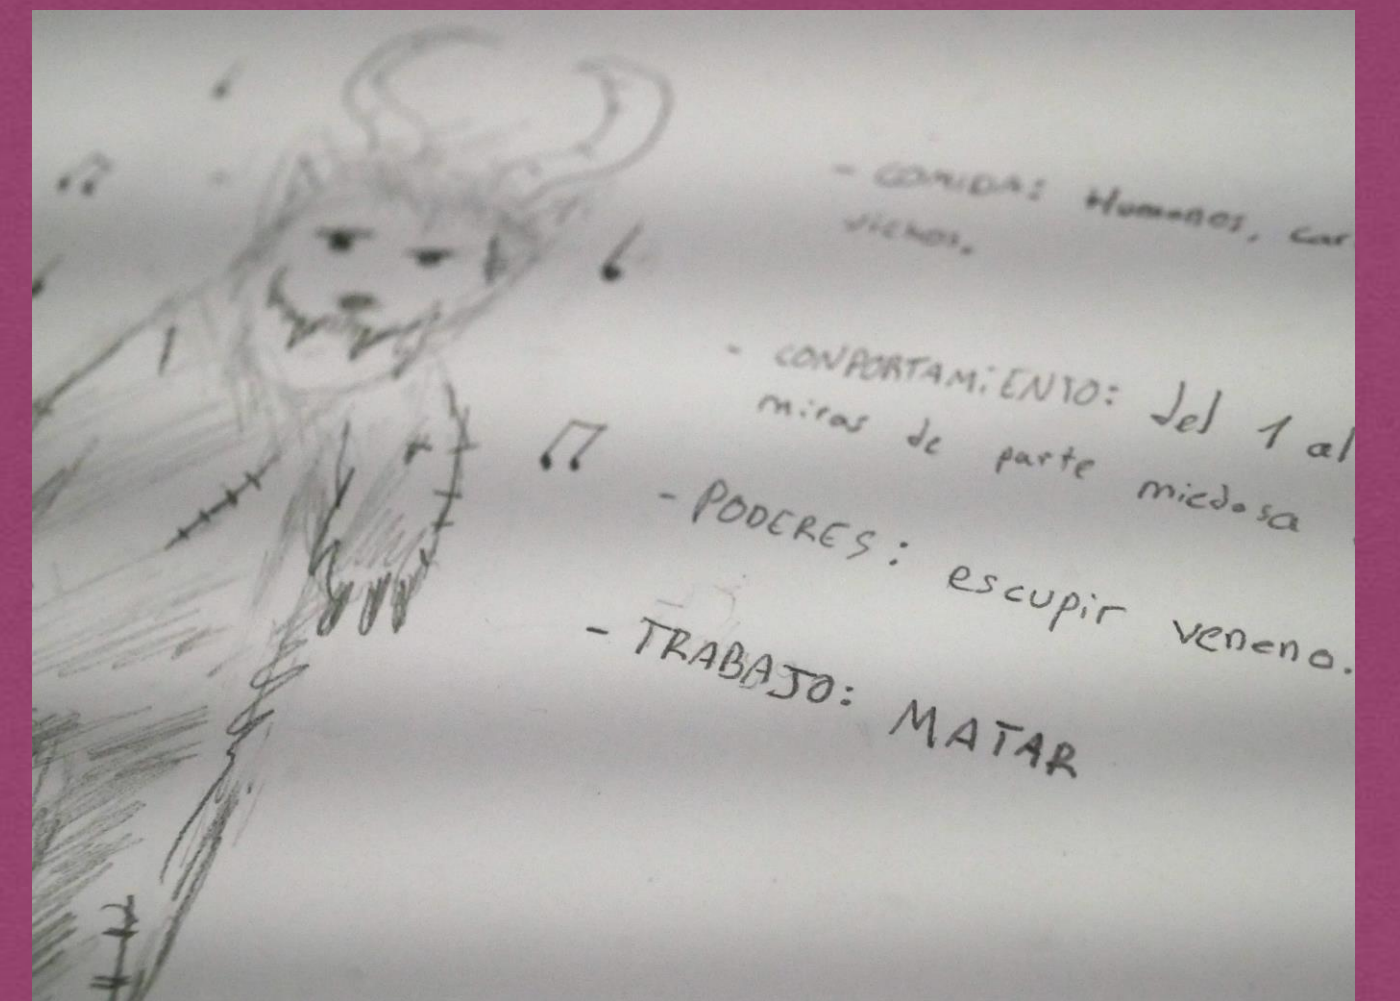 - COMIDA: Humanos, car
vichos.
- CONPORTAMiENTO: del 1 al
miras de parte miedosa
- PODERES: escupir veneno.
- TRABAJO: MATAR